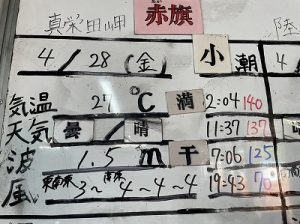 真栄田岬 赤旗 陸
4/28(金) 小潮
気温 27℃ 満 2:04 140
天気 曇/晴 11:37 137
波 1.5m 干 7:06 125
風 3~4~4~4 19:43 70